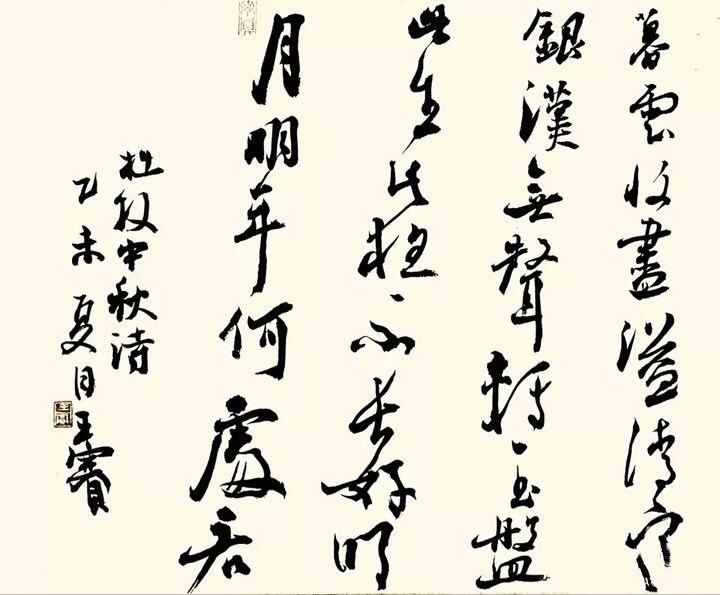 暮雲收盡溢清寒
銀漢無聲轉玉盤
此生此夜不長好明
月明年何處看
杜牧中秋诗
乙未夏月王賽